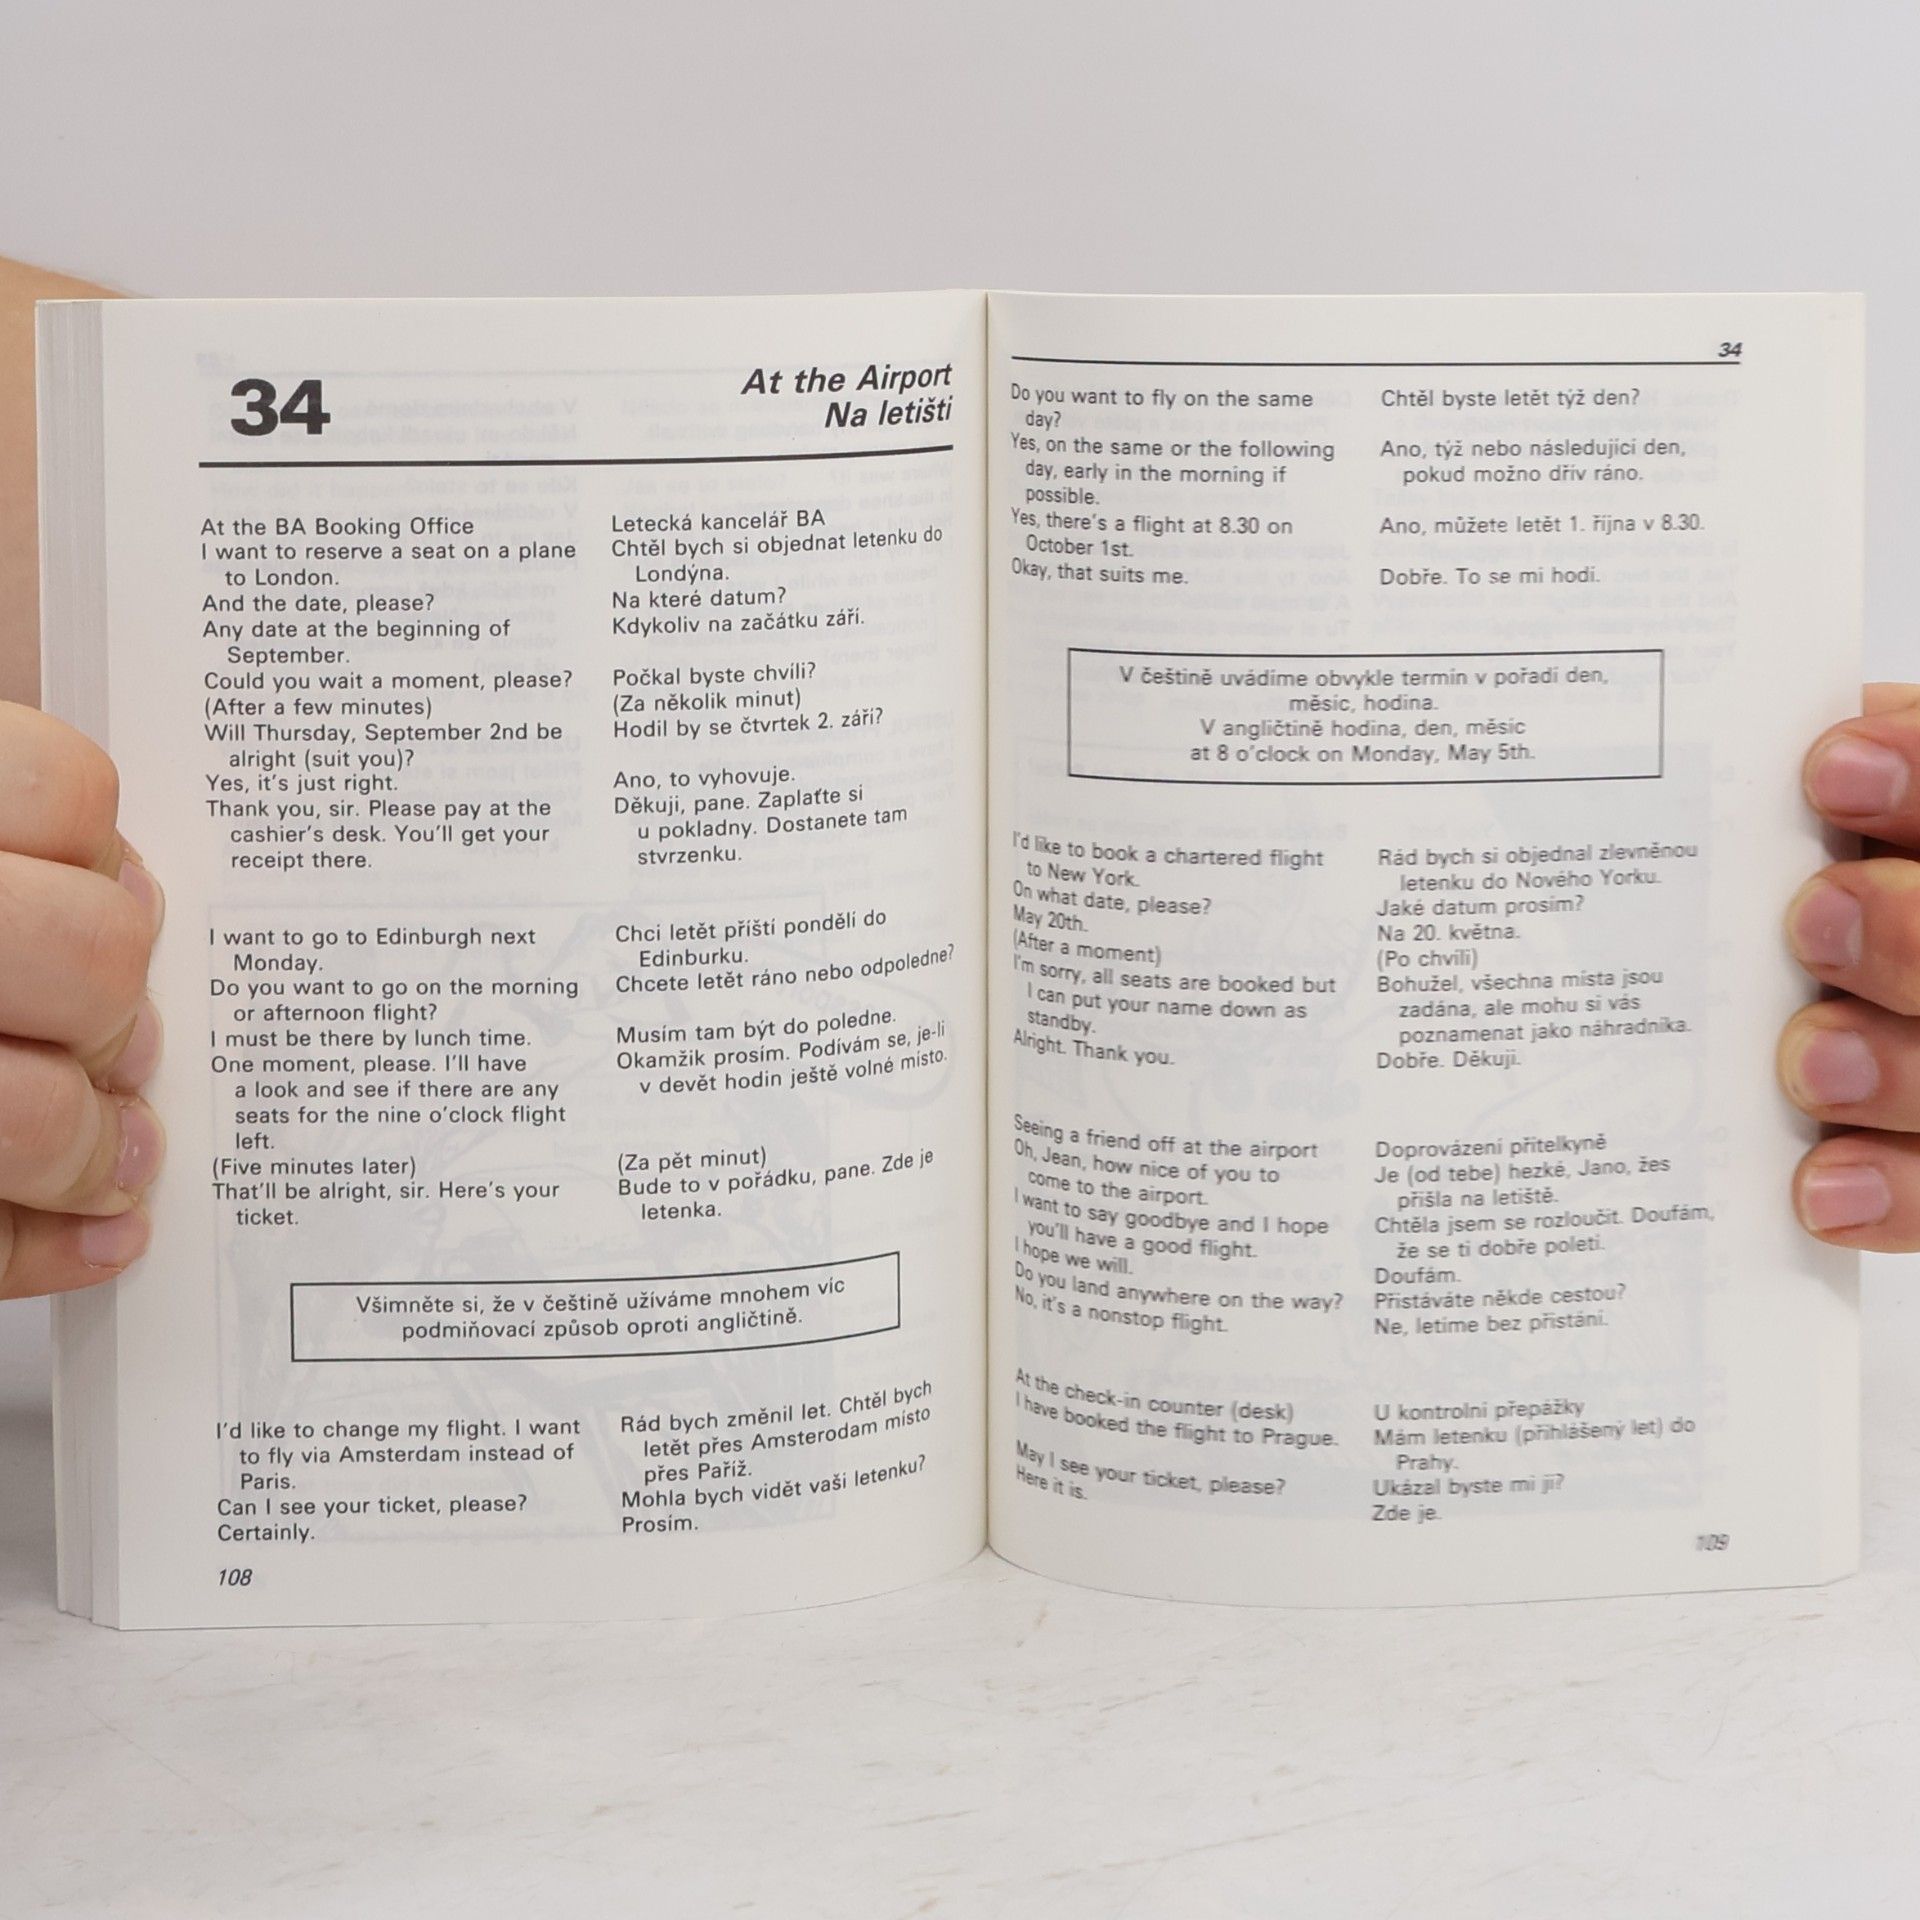 34
At the Airport
Na letišti
At the BA Booking Office
I want to reserve a seat on a plane
to London.
And the date, please?
Any date at the beginning of
September.
Could you wait a moment, please?
(After a few minutes)
Will Thursday, September 2nd be
alright (suit you)?
Yes, it's just right.
Thank you, sir. Please pay at the
cashier's desk. You'll get your
receipt there.
Letecká kancelář BA
Chtěl bych si objednat letenku do
Londýna.
Na které datum?
Kdykoliv na začátku září.
Počkal byste chvíli?
(Za několik minut)
Hodil by se čtvrtek 2. září?
Ano, to vyhovuje.
Děkuji, pane. Zaplaťte si
u pokladny. Dostanete tam
stvrzenku.
I want to go to Edinburgh next
Monday.
Do you want to go on the morning
or afternoon flight?
I must be there by lunch time.
One moment, please. I'll have
a look and see if there are any
seats for the nine o'clock flight
left.
(Five minutes later)
That'll be alright, sir. Here's your
ticket.
Chci letět příští pondělí do
Edinburku.
Chcete letět ráno nebo odpoledne?
Musím tam být do poledne.
Okamžik prosím. Podívám se, je-li
v devět hodin ještě volné místo.
(Za pět minut)
Bude to v pořádku, pane. Zde je
letenka.
Všimněte si, že v češtině užíváme mnohem víc
podmiňovací způsob oproti angličtině.
I'd like to change my flight. I want
to fly via Amsterdam instead of
Paris.
Can I see your ticket, please?
Certainly.
Rád bych změnil let. Chtěl bych
letět přes Amsterodam místo
přes Paříž.
Mohla bych vidět vaši letenku?
Prosím.
108
34
Do you want to fly on the same
day?
Yes, on the same or the following
day, early in the morning if
possible.
Yes, there's a flight at 8.30 on
October 1st.
Okay, that suits me.
Chtěl byste letět týž den?
Ano, týž nebo následující den,
pokud možno dřív ráno.
Ano, můžete letět 1. října v 8.30.
Dobře. To se mi hodí.
V češtině uvádíme obvykle termín v pořadí den,
měsíc, hodina.
V angličtině hodina, den, měsíc
at 8 o'clock on Monday, May 5th.
I'd like to book a chartered flight
to New York.
On what date, please?
May 20th.
(After a moment)
I'm sorry, all seats are booked but
I can put your name down as
standby.
Alright. Thank you.
Rád bych si objednal zlevněnou
letenku do Nového Yorku.
Jaké datum prosím?
Na 20. května.
(Po chvíli)
Bohužel, všechna místa jsou
zadána, ale mohu si vás
poznamenat jako náhradníka.
Dobře. Děkuji.
Seeing a friend off at the airport
Oh, Jean, how nice of you to
come to the airport.
I want to say goodbye and I hope
you'll have a good flight.
I hope we will.
Do you land anywhere on the way?
No, it's a nonstop flight.
Doprovázení přítelkyně
Je (od tebe) hezké, Jano, žes
přišla na letiště.
Chtěla jsem se rozloučit. Doufám,
že se ti dobře poletí.
Doufám.
Přistáváte někde cestou?
Ne, letíme bez přistání.
At the check-in counter (desk)
I have booked the flight to Prague.
May I see your ticket, please?
Here it is.
U kontrolní přepážky
Mám letenku (přihlášený let) do
Prahy.
Ukázal byste mi ji?
Zde je.
109